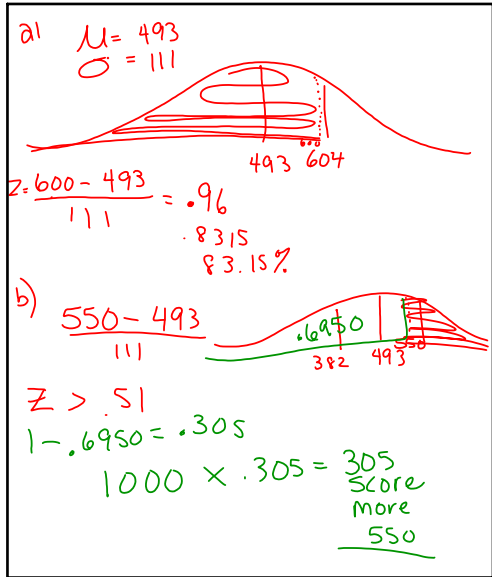 a)
μ = 493
σ = 111
600
493 604
z = 600 - 493 / 111 = .96
.8315
83.15%
b)
550 - 493 / 111
.6950
382 493 550
Z > .51
1 - .6950 = .305
1000 × .305 = 305
score
more
550